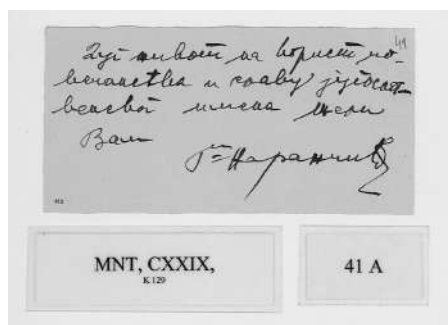 41
Дуг живот на корист чо-
вечанства и славу југосло-
венског имена жели
Вам
412
MNT, CXXIX,
K 129
41 A